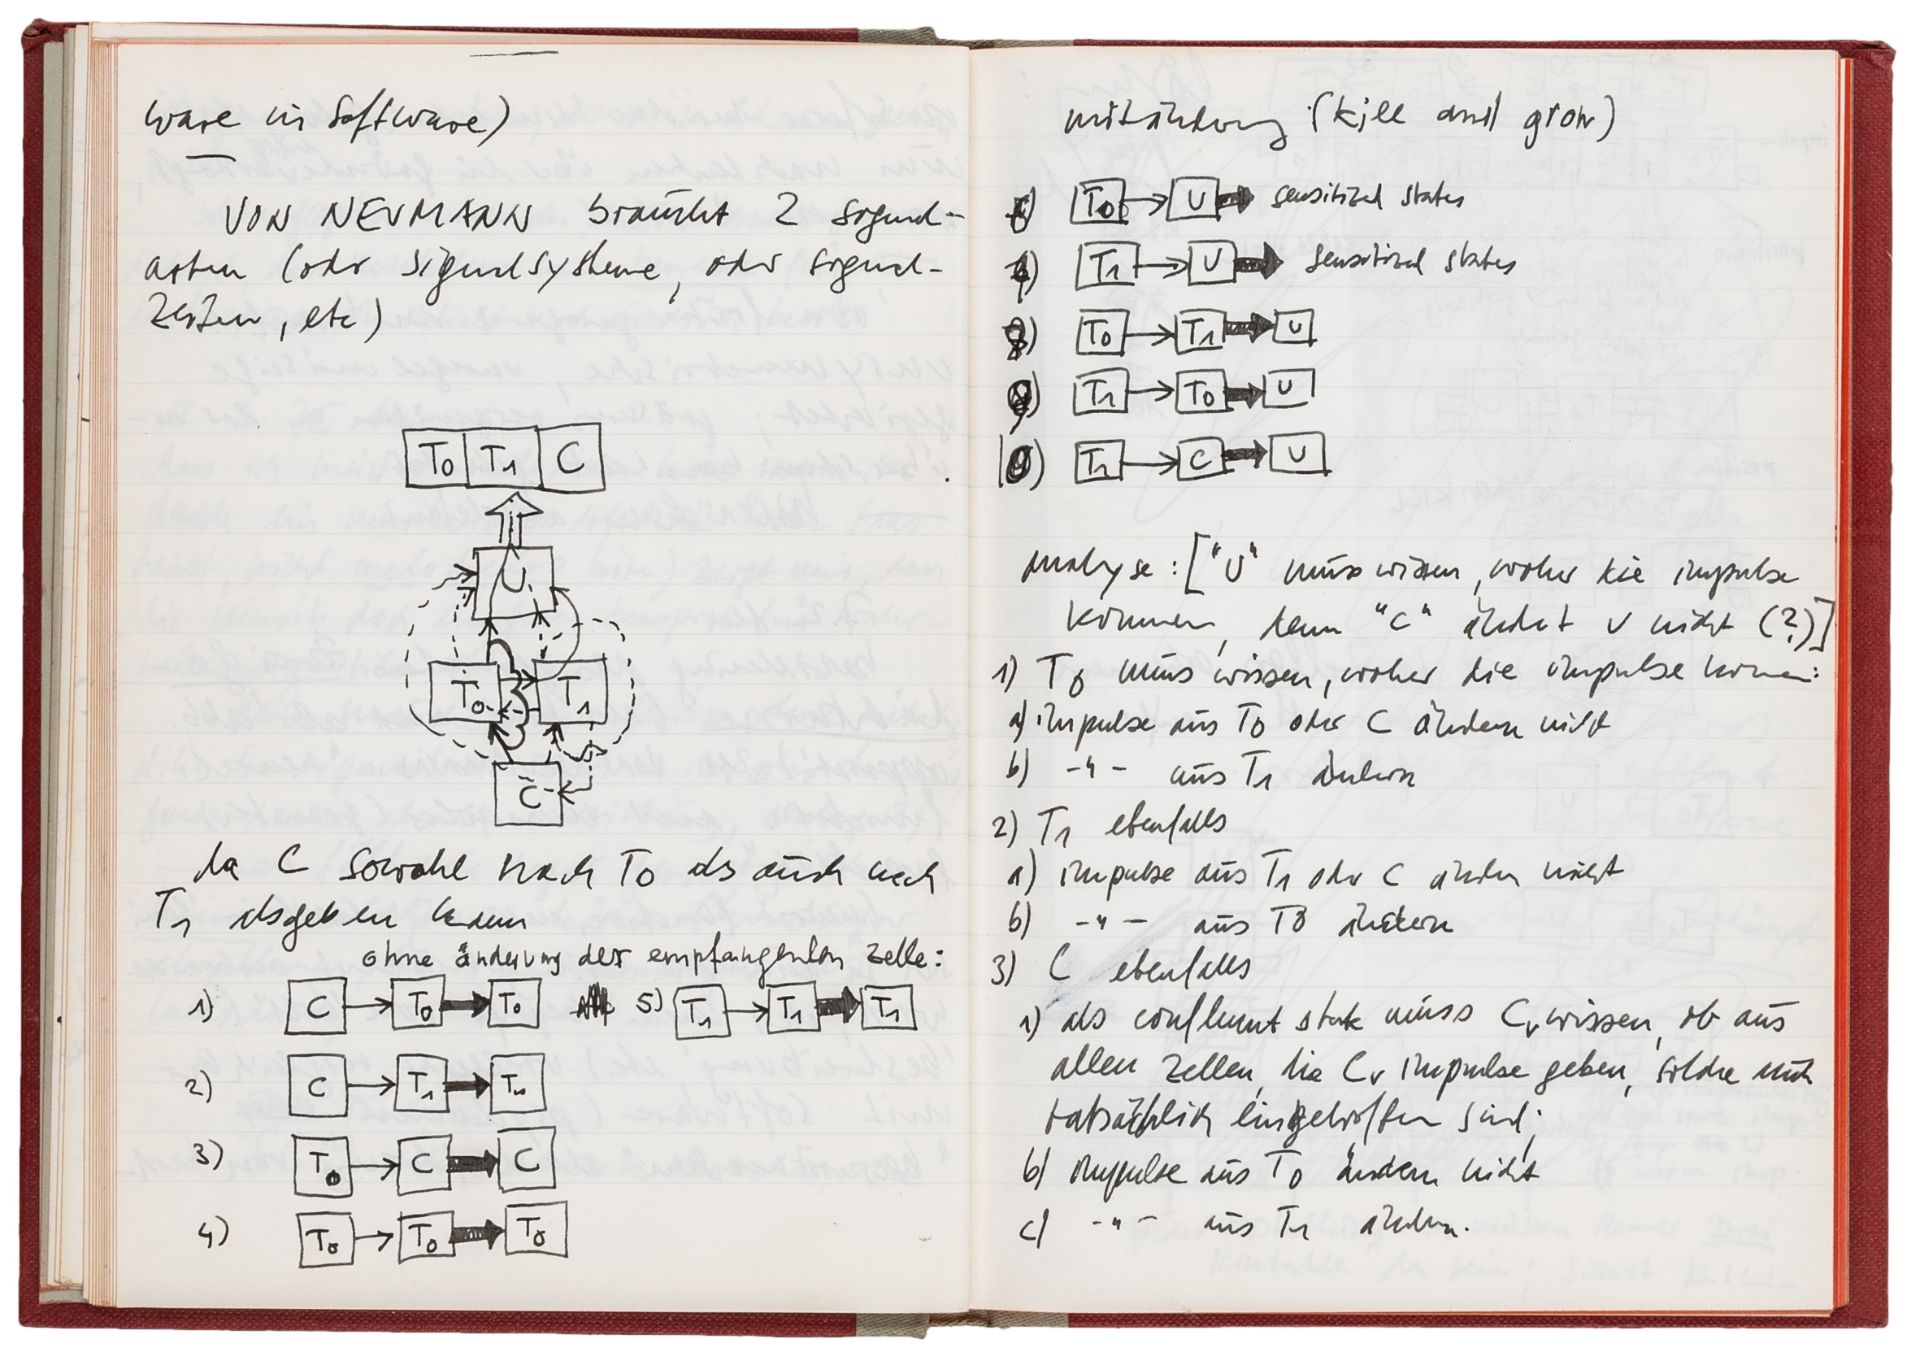 ware in Software)
VON NEUMANN braucht 2 signal-
arten (oder signalsysteme, oder signal-
zeiten, etc)
T0 T1 C
U
T0 T1
C
da C sowohl nach T0 als auch nach
T1 abgeben kann
ohne änderung der empfangenden zelle:
1) C → T0 → T0 5) T1 → T1 → T1
2) C → T1 → T1
3) T0 → C → C
4) T0 → T0 → T0
mit änderung (kill and grow)
6) T0 → U → sensitized states
7) T1 → U → sensitized states
8) T0 → T1 → U
9) T1 → T0 → U
10) T1 → C → U
analyse: ["U" muss wissen, woher die impulse
kommen, denn "C" ändert U nicht (?)]
1) T0 muss wissen, woher die impulse kommen:
a) impulse aus T0 oder C ändern nicht
b) -"- aus T1 ändern
2) T1 ebenfalls
a) impulse aus T1 oder C ändern nicht
b) -"- aus T0 ändern
3) C ebenfalls
a) als confluent state muss C, wissen, ob aus
allen zellen, die C impulse geben, solche auch
tatsächlich eingetroffen sind;
b) impulse aus T0 ändern nicht
c) -"- aus T1 ändern.